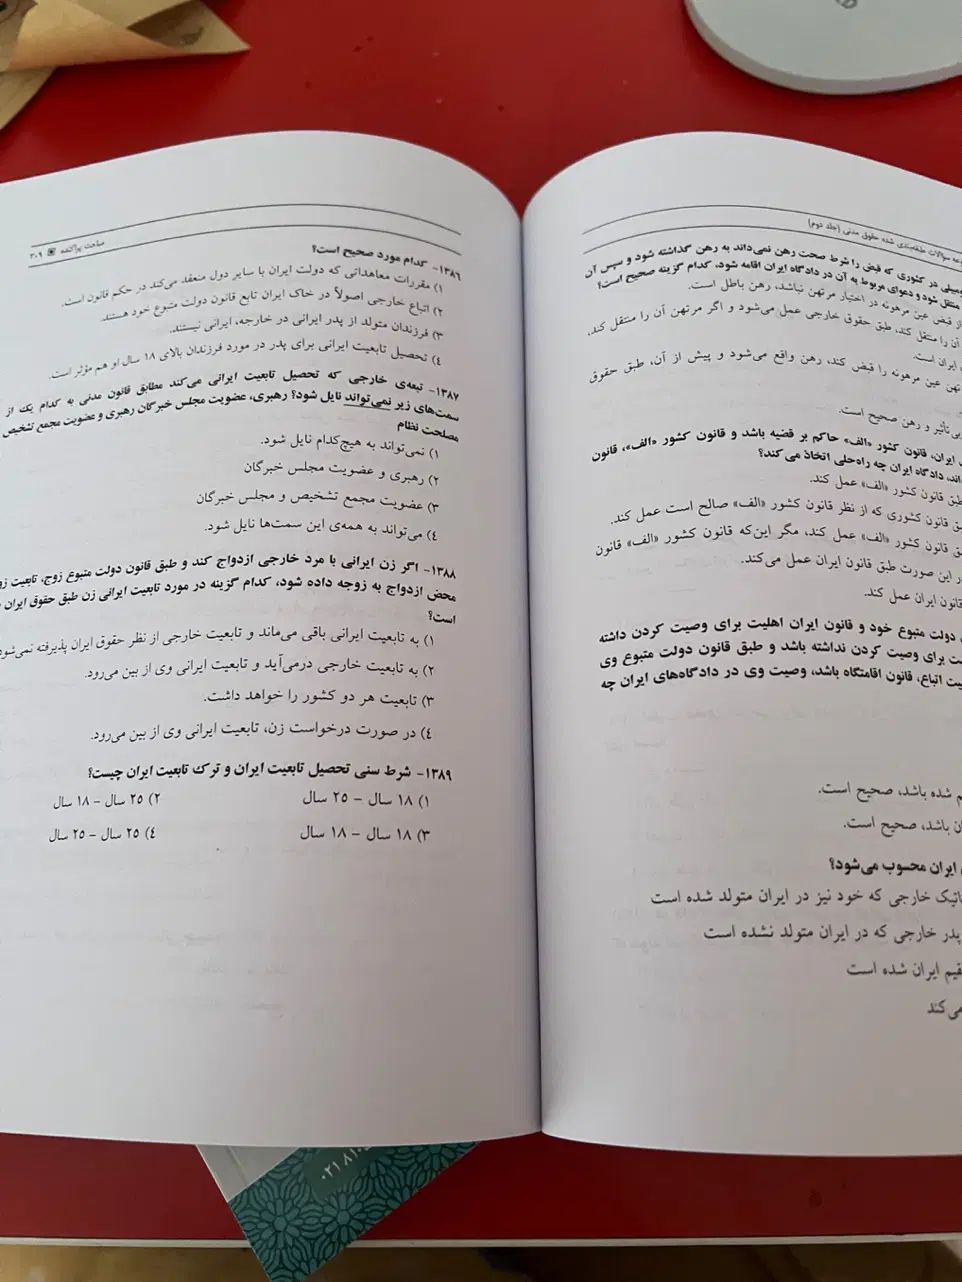 سوالات طبقه‌بندی شده حقوق مدنی (جلد دوم)
در کشوری که قبض را شرط صحت رهن نمی‌داند به رهن گذاشته شود و سپس آن
منتقل شود و دعوای مربوط به آن در دادگاه ایران اقامه شود، کدام گزینه صحیح است؟
از قبض عین مرهونه در اختیار مرتهن نباشد، رهن باطل است.
آن را منتقل کند، طبق حقوق خارجی عمل می‌شود و اگر مرتهن آن را منتقل کند،
ایران است.
عین مرهونه را قبض کند، رهن واقع می‌شود و پیش از آن، طبق حقوق
بی‌تأثیر و رهن صحیح است.
ایران، قانون کشور «الف» حاکم بر قضیه باشد و قانون کشور «الف»، قانون
دادگاه ایران چه راه‌حلی اتخاذ می‌کند؟
طبق قانون کشور «الف» عمل کند.
قانون کشوری که از نظر قانون کشور «الف» صالح است عمل کند.
قانون کشور «الف» عمل کند، مگر این‌که قانون کشور «الف» قانون
در این صورت طبق قانون ایران عمل می‌کند.
قانون ایران عمل کند.
دولت متبوع خود و قانون ایران اهلیت برای وصیت کردن داشته
برای وصیت کردن نداشته باشد و طبق قانون دولت متبوع وی
اتباع، قانون اقامتگاه باشد، وصیت وی در دادگاه‌های ایران چه
شده باشد، صحیح است.
باشد، صحیح است.
ایران محسوب می‌شود؟
خارجی که خود نیز در ایران متولد شده است
پدر خارجی که در ایران متولد نشده است
ایران شده است
می‌کند
مباحث پراکنده ▣ ۳۰۹
۱۳۸۶- کدام مورد صحیح است؟
۱) مقررات معاهداتی که دولت ایران با سایر دول منعقد می‌کند در حکم قانون است.
۲) اتباع خارجی اصولاً در خاک ایران تابع قانون دولت متبوع خود هستند.
۳) فرزندان متولد از پدر ایرانی در خارجه، ایرانی نیستند.
۴) تحصیل تابعیت ایرانی برای پدر در مورد فرزندان بالای ۱۸ سال او هم مؤثر است.
۱۳۸۷- تبعه‌ی خارجی که تحصیل تابعیت ایرانی می‌کند مطابق قانون مدنی به کدام یک از
سمت‌های زیر نمی‌تواند نایل شود؟ رهبری، عضویت مجلس خبرگان رهبری و عضویت مجمع تشخیص
مصلحت نظام
۱) نمی‌تواند به هیچ‌کدام نایل شود.
۲) رهبری و عضویت مجلس خبرگان
۳) عضویت مجمع تشخیص و مجلس خبرگان
۴) می‌تواند به همه‌ی این سمت‌ها نایل شود.
۱۳۸۸- اگر زن ایرانی با مرد خارجی ازدواج کند و طبق قانون دولت متبوع زوج، تابعیت
محض ازدواج به زوجه داده شود، کدام گزینه در مورد تابعیت ایرانی زن طبق حقوق ایران
است؟
۱) به تابعیت ایرانی باقی می‌ماند و تابعیت خارجی از نظر حقوق ایران پذیرفته نمی‌شود
۲) به تابعیت خارجی درمی‌آید و تابعیت ایرانی وی از بین می‌رود.
۳) تابعیت هر دو کشور را خواهد داشت.
۴) در صورت درخواست زن، تابعیت ایرانی وی از بین می‌رود.
۱۳۸۹- شرط سنی تحصیل تابعیت ایران و ترک تابعیت ایران چیست؟
۱) ۱۸ سال – ۲۵ سال ۲) ۲۵ سال – ۱۸ سال
۳) ۱۸ سال – ۱۸ سال ۴) ۲۵ سال – ۲۵ سال